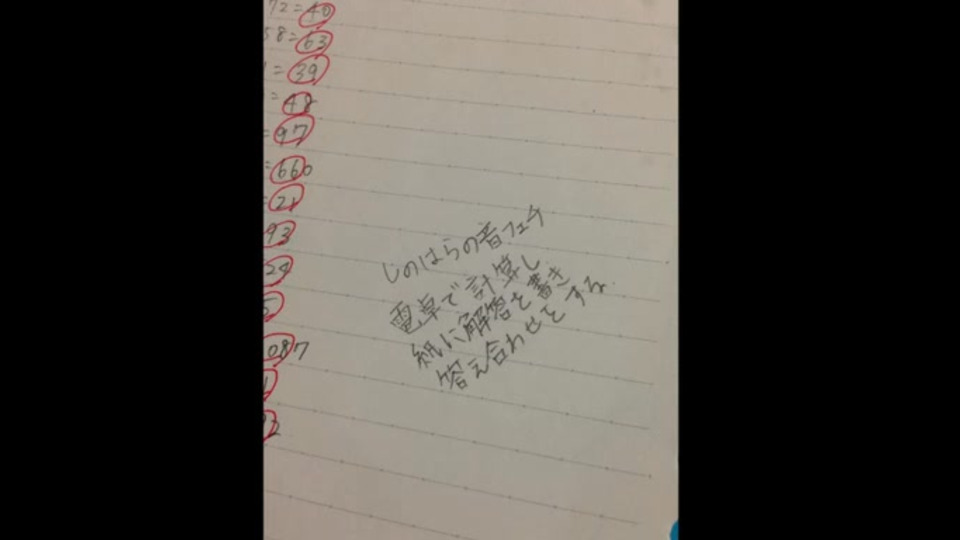 72=40
58=63
=39
=48
=97
=660
=21
93
24
5
087
1
32
しのはらの音フェチ
電卓で計算し
紙に解答を書き
答え合わせをする